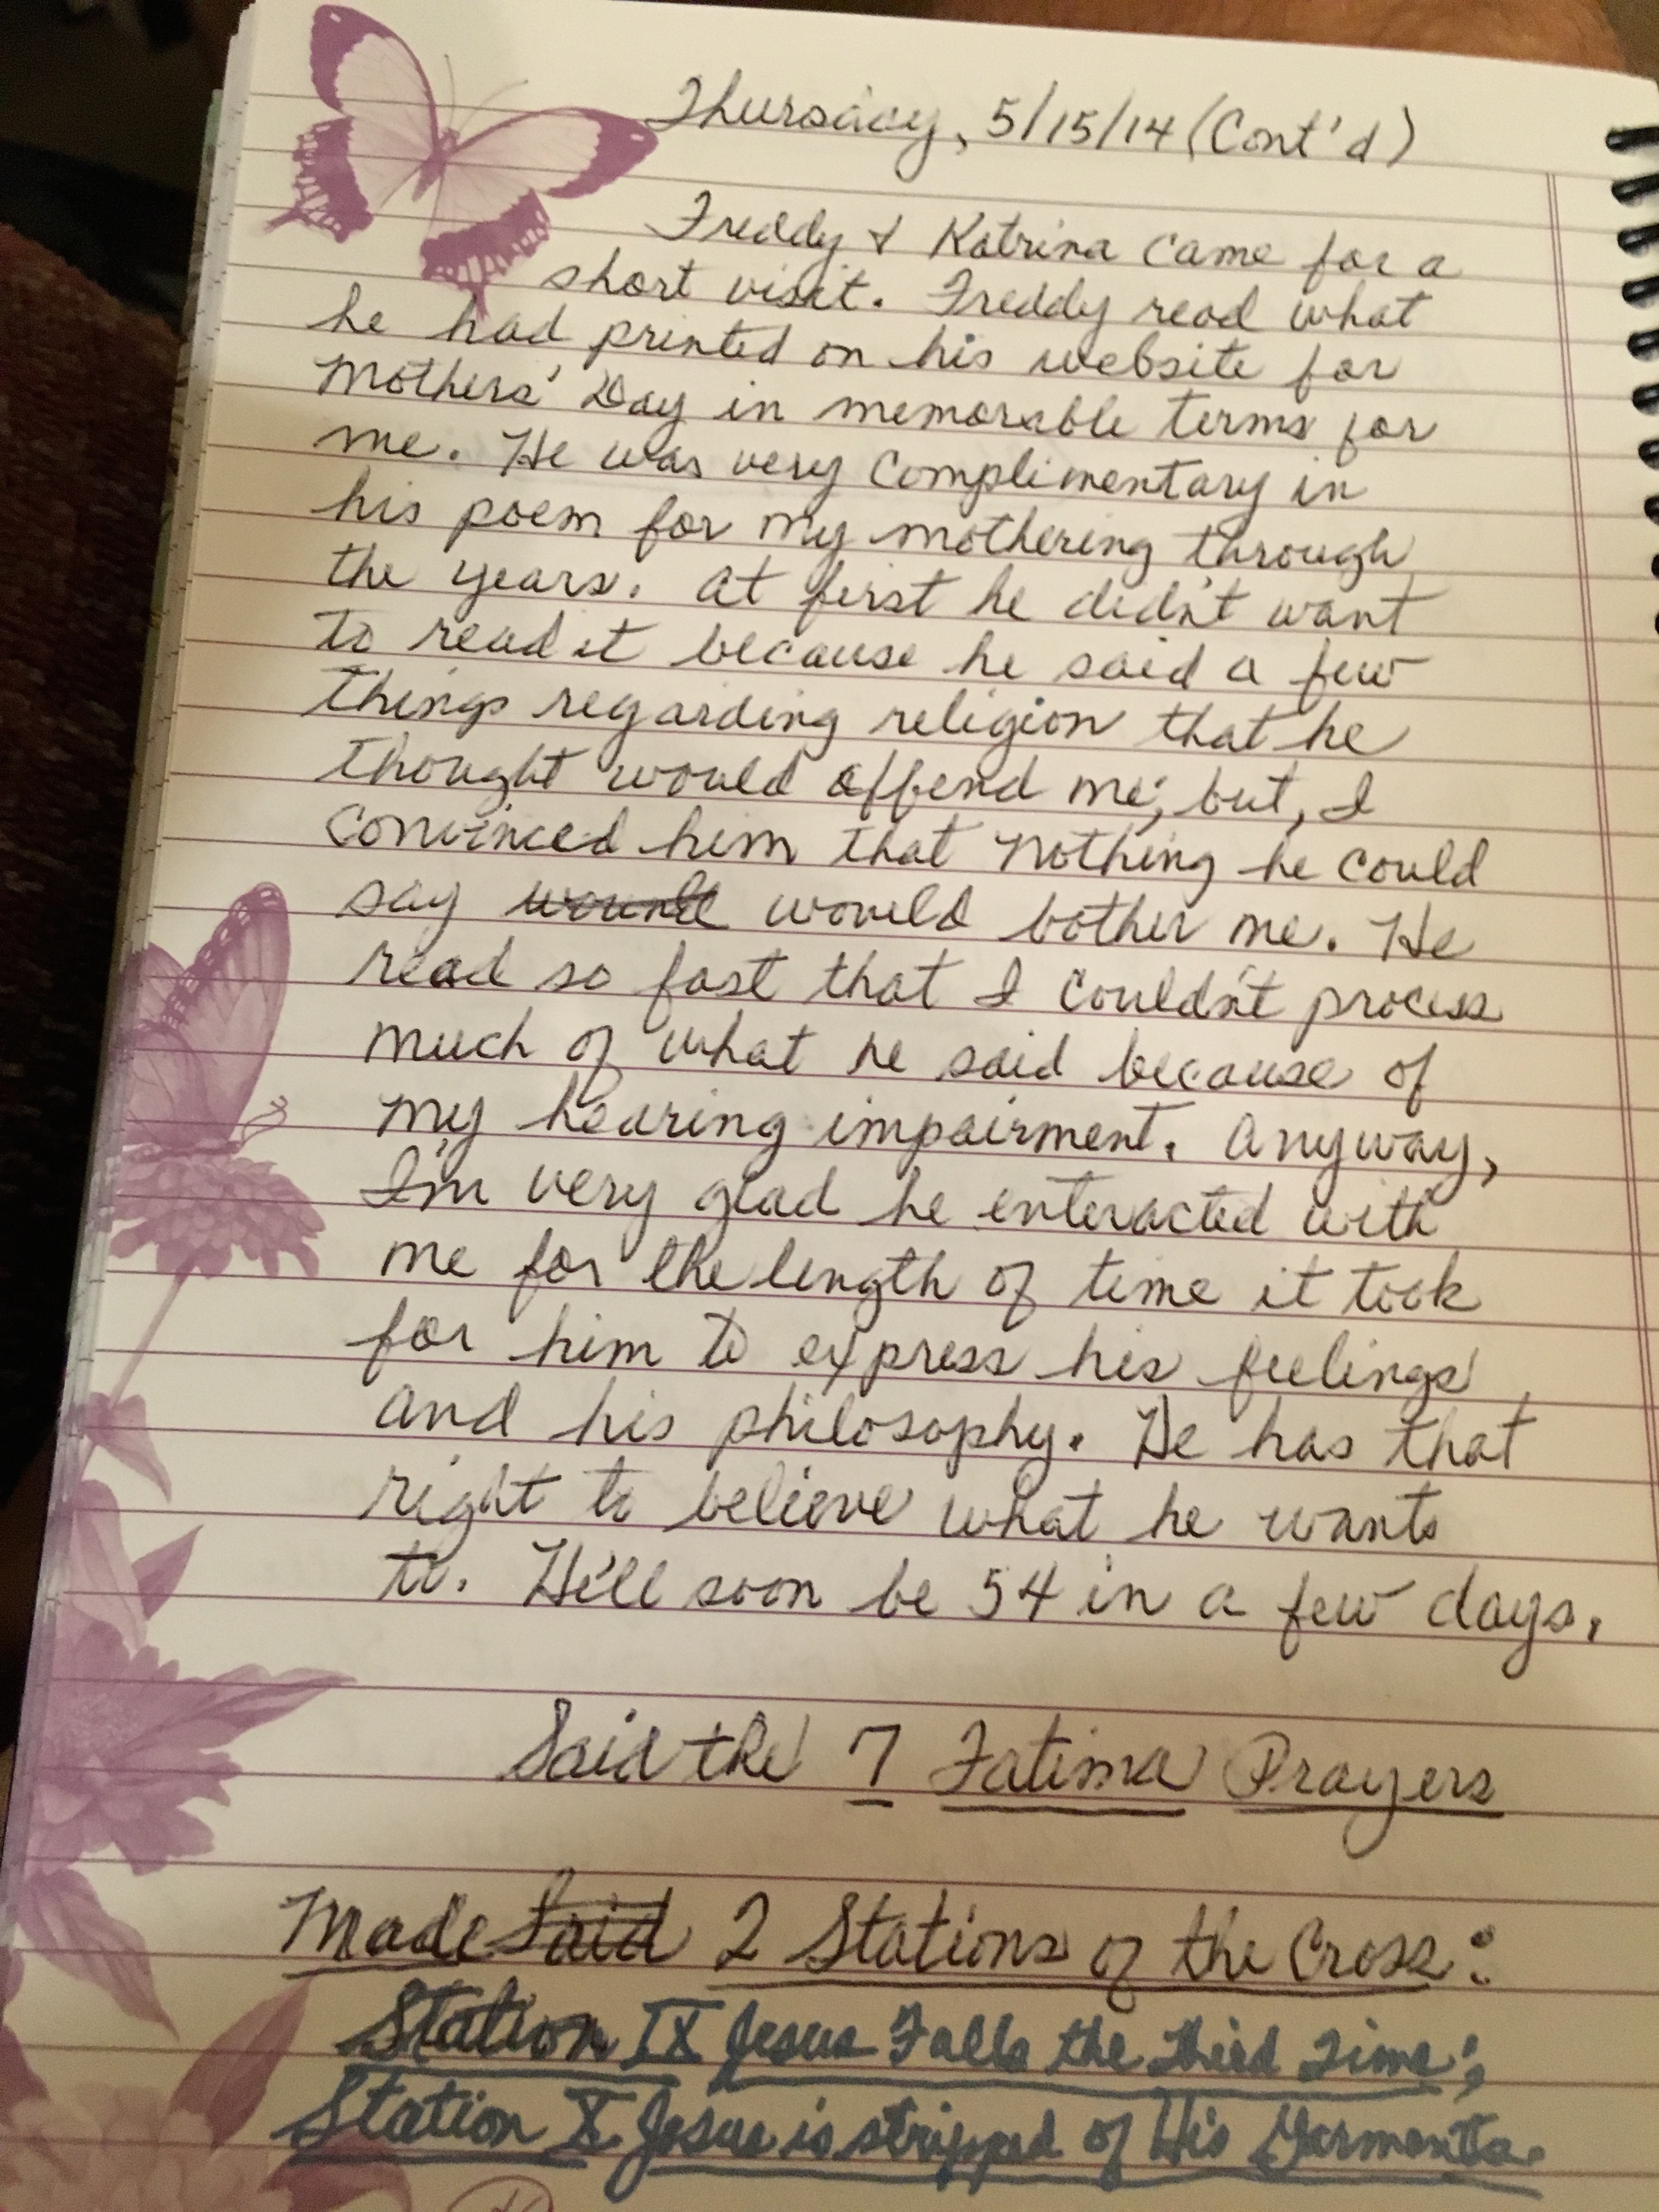 Thursday, 5/15/14 (Cont'd)
Freddy & Katrina came for a
short visit. Freddy read what
he had printed on his website for
Mothers' Day in memorable terms for
me. He was very complimentary in
his poem for my mothering through
the years. At first he didn't want
to read it because he said a few
things regarding religion that he
thought would offend me; but, I
convinced him that nothing he could
say would bother me. He
read so fast that I couldn't process
much of what he said because of
my hearing impairment. Anyway,
I'm very glad he enteracted with
me for the length of time it took
for him to express his feelings
and his philosophy. He has that
right to believe what he wants
to. He'll soon be 54 in a few days.
Said the 7 Fatima Prayers
Made Said 2 Stations of the Cross:
Station IX Jesus Falls the Third Time;
Station X Jesus is stripped of His Garments.